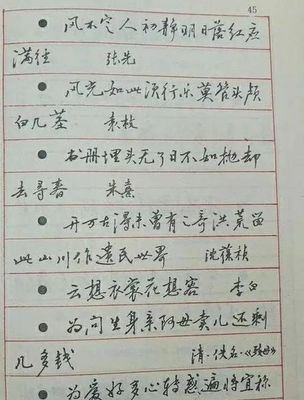 45
● 风不定人初静明日落红应
满径 张先
● 风光如此须行乐莫管头颅
白几茎 袁枚
● 书册埋头无了日不如抛却
去寻春 朱熹
● 开万古得未曾有之奇洪荒留
此山川作遗民世界 沈葆桢
● 云想衣裳花想容 李白
● 为问生身亲阿母卖儿还剩
几多钱 清·佚名·《致母》
● 为爱好多心转惑遍将宜称